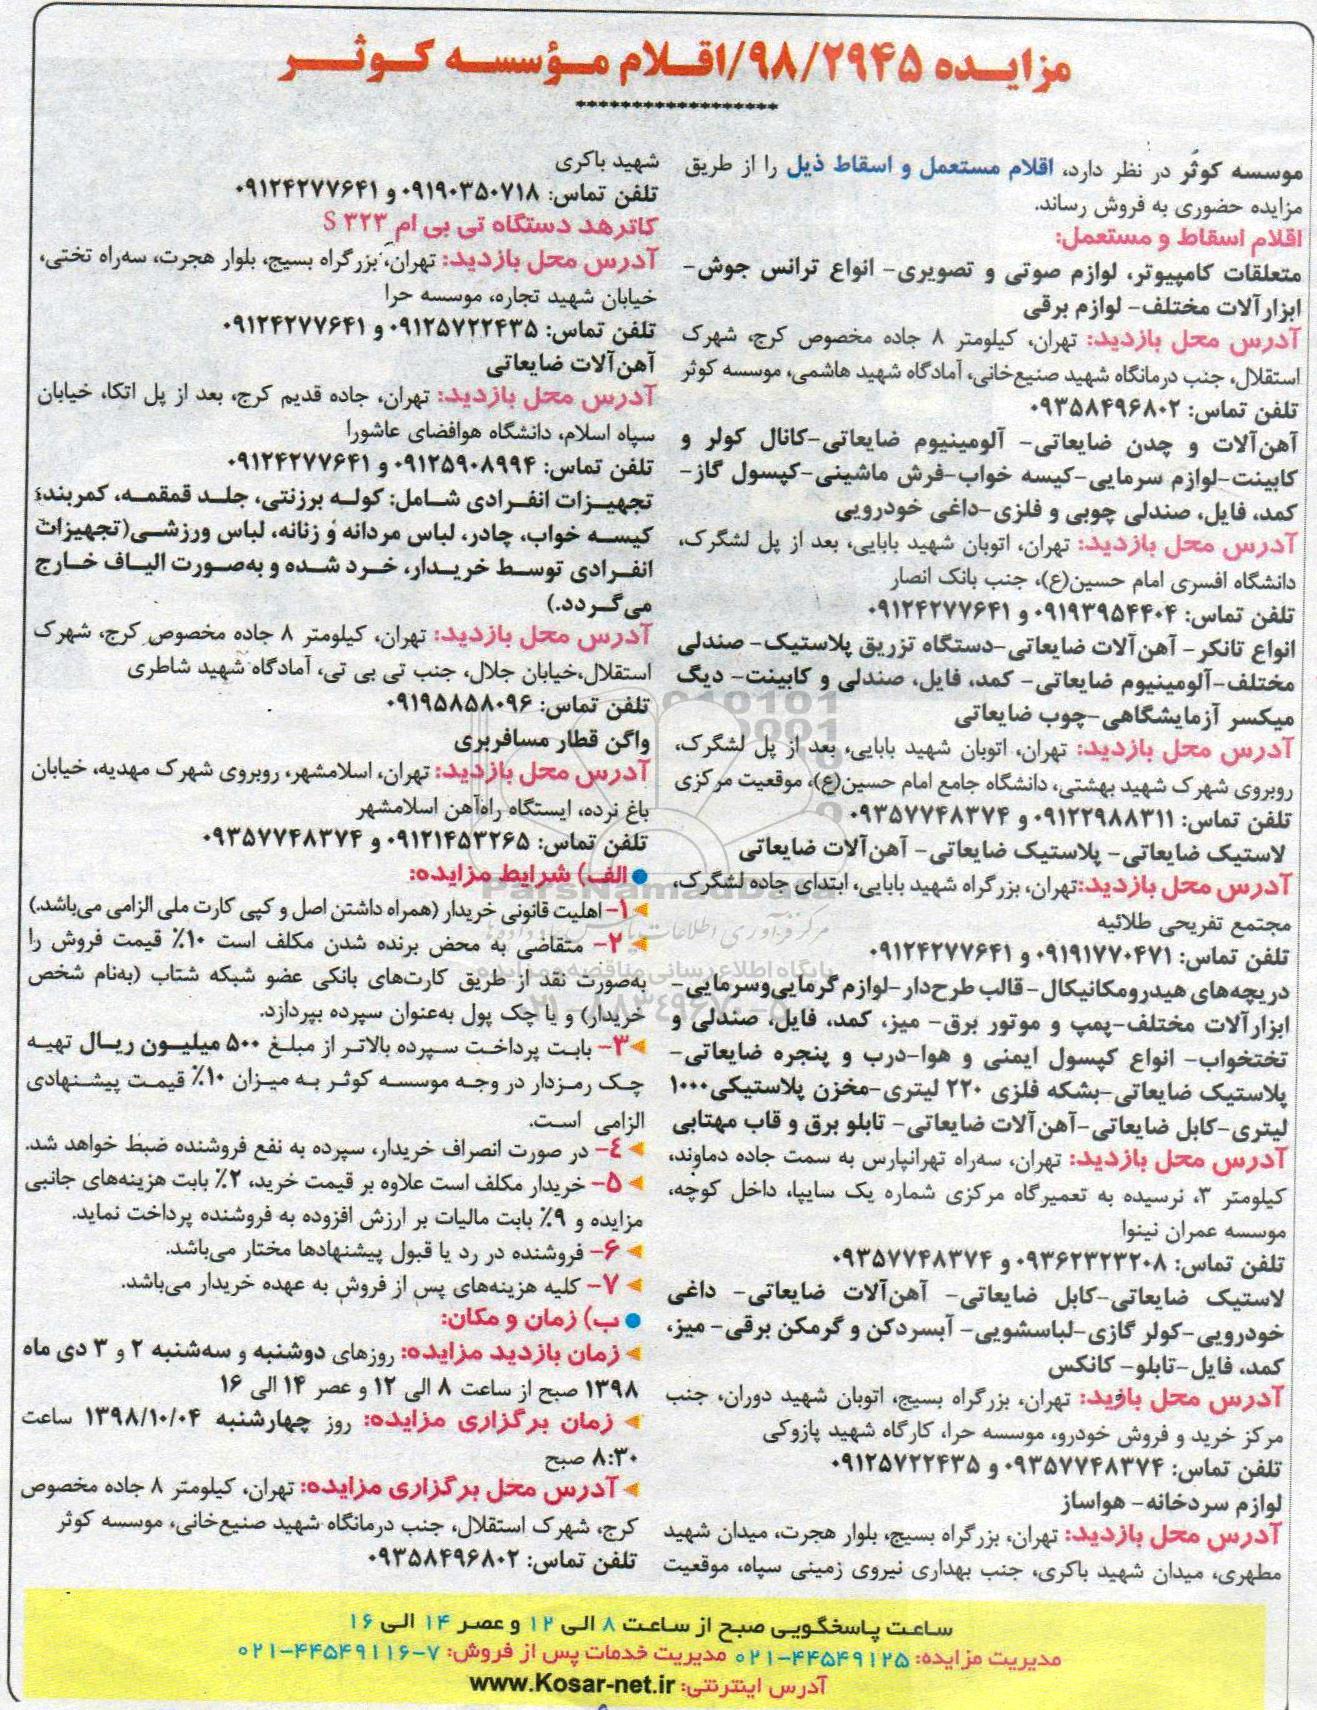 مزایـده ۹۸/۲۹۴۵/اقـلام مـؤسسـه کـوثـر
موسسه کوثر در نظر دارد، اقلام مستعمل و اسقاط ذیل را از طریق
مزایده حضوری به فروش رساند.
اقلام اسقاط و مستعمل:
متعلقات کامپیوتر، لوازم صوتی و تصویری- انواع ترانس جوش-
ابزارآلات مختلف- لوازم برقی
آدرس محل بازدید: تهران، کیلومتر ۸ جاده مخصوص کرج، شهرک
استقلال، جنب درمانگاه شهید صنیع‌خانی، آمادگاه شهید هاشمی، موسسه کوثر
تلفن تماس: ۰۹۳۵۸۴۹۶۸۰۲
آهن‌آلات و چدن ضایعاتی- آلومینیوم ضایعاتی-کانال کولر و
کابینت-لوازم سرمایی-کیسه خواب-فرش ماشینی-کپسول گاز-
کمد، فایل، صندلی چوبی و فلزی-داغی خودرویی
آدرس محل بازدید: تهران، اتوبان شهید بابایی، بعد از پل لشگرک،
دانشگاه افسری امام حسین(ع)، جنب بانک انصار
تلفن تماس: ۰۹۱۹۳۹۵۴۴۰۴ و ۰۹۱۲۴۲۷۷۶۴۱
انواع تانکر- آهن‌آلات ضایعاتی-دستگاه تزریق پلاستیک- صندلی
مختلف-آلومینیوم ضایعاتی- کمد، فایل، صندلی و کابینت- دیگ
میکسر آزمایشگاهی-چوب ضایعاتی
آدرس محل بازدید: تهران، اتوبان شهید بابایی، بعد از پل لشگرک،
روبروی شهرک شهید بهشتی، دانشگاه جامع امام حسین(ع)، موقعیت مرکزی
تلفن تماس: ۰۹۱۲۲۹۸۸۳۱۱ و ۰۹۳۵۷۷۴۸۳۷۴
لاستیک ضایعاتی- پلاستیک ضایعاتی- آهن‌آلات ضایعاتی
آدرس محل بازدید:تهران، بزرگراه شهید بابایی، ابتدای جاده لشگرک،
مجتمع تفریحی طلائیه
تلفن تماس: ۰۹۱۹۱۷۷۰۴۷۱ و ۰۹۱۲۴۲۷۷۶۴۱
دریچه‌های هیدرومکانیکال-قالب طرح‌دار-لوازم گرمایی‌وسرمایی-
ابزارآلات مختلف-پمپ و موتور برق- میز، کمد، فایل، صندلی و
تختخواب- انواع کپسول ایمنی و هوا-درب و پنجره ضایعاتی-
پلاستیک ضایعاتی-بشکه فلزی ۲۲۰ لیتری-مخزن پلاستیکی۱۰۰۰
لیتری-کابل ضایعاتی-آهن‌آلات ضایعاتی- تابلو برق و قاب مهتابی
آدرس محل بازدید: تهران، سه‌راه تهرانپارس به سمت جاده دماوند،
کیلومتر ۳، نرسیده به تعمیرگاه مرکزی شماره یک سایپا، داخل کوچه،
موسسه عمران نینوا
تلفن تماس: ۰۹۳۶۲۳۲۳۲۰۸ و ۰۹۳۵۷۷۴۸۳۷۴
لاستیک ضایعاتی-کابل ضایعاتی- آهن‌آلات ضایعاتی- داغی
خودرویی-کولر گازی-لباسشویی- آبسردکن و گرمکن برقی- میز،
کمد، فایل-تابلو- کانکس
آدرس محل بازدید: تهران، بزرگراه بسیج، اتوبان شهید دوران، جنب
مرکز خرید و فروش خودرو، موسسه حرا، کارگاه شهید پازوکی
تلفن تماس: ۰۹۳۵۷۷۴۸۳۷۴ و ۰۹۱۲۵۷۲۲۴۳۵
لوازم سردخانه- هواساز
آدرس محل بازدید: تهران، بزرگراه بسیج، بلوار هجرت، میدان شهید
مطهری، میدان شهید باکری، جنب بهداری نیروی زمینی سپاه، موقعیت
شهید باکری
تلفن تماس: ۰۹۱۹۰۳۵۰۷۱۸ و ۰۹۱۲۴۲۷۷۶۴۱
کاترهد دستگاه تی بی ام S ۳۲۳
آدرس محل بازدید: تهران، بزرگراه بسیج، بلوار هجرت، سه‌راه تختی،
خیابان شهید تجاره، موسسه حرا
تلفن تماس: ۰۹۱۲۵۷۲۲۴۳۵ و ۰۹۱۲۴۲۷۷۶۴۱
آهن‌آلات ضایعاتی
آدرس محل بازدید: تهران، جاده قدیم کرج، بعد از پل اتکا، خیابان
سپاه اسلام، دانشگاه هوافضای عاشورا
تلفن تماس: ۰۹۱۲۵۹۰۸۹۹۴ و ۰۹۱۲۴۲۷۷۶۴۱
تجهیـزات انفـرادی شـامل: کولـه برزنتی، جلـد قمقمـه، کمربند،
کیسـه خواب، چادر، لباس مردانه و زنانه، لباس ورزشـی(تجهیزات
انفـرادی توسـط خریـدار، خـرد شـده و به‌صورت الیـاف خـارج
می‌گـردد.)
آدرس محل بازدید: تهران، کیلومتر ۸ جاده مخصوص کرج، شهرک
استقلال،خیابان جلال، جنب تی بی تی، آمادگاه شهید شاطری
تلفن تماس: ۰۹۱۹۵۸۵۸۰۹۶
واگن قطار مسافربری
آدرس محل بازدید: تهران، اسلامشهر، روبروی شهرک مهدیه، خیابان
باغ نرده، ایستگاه راه‌آهن اسلامشهر
تلفن تماس: ۰۹۱۲۱۴۵۳۲۶۵ و ۰۹۳۵۷۷۴۸۳۷۴
الف) شرایط مزایده:
۱- اهلیت قانونی خریدار (همراه داشتن اصل و کپی کارت ملی الزامی می‌باشد.)
۲- متقاضی به محض برنده شدن مکلف است ۱۰٪ قیمت فروش را
به‌صورت نقد از طریق کارت‌های بانکی عضو شبکه شتاب (به‌نام شخص
خریدار) و یا چک پول به‌عنوان سپرده بپردازد.
۳- بابـت پرداخـت سـپرده بالاتـر از مبلـغ ۵۰۰ میلیـون ریـال تهیـه
چـک رمـزدار در وجـه موسسـه کوثـر بـه میـزان ۱۰٪ قیمـت پیشـنهادی
الزامی اسـت.
٤- در صورت انصراف خریدار، سپرده به نفع فروشنده ضبط خواهد شد.
۵- خریدار مکلف است علاوه بر قیمت خرید، ۲٪ بابت هزینه‌های جانبی
مزایده و ۹٪ بابت مالیات بر ارزش افزوده به فروشنده پرداخت نماید.
۶- فروشنده در رد یا قبول پیشنهادها مختار می‌باشد.
۷- کلیه هزینه‌های پس از فروش به عهده خریدار می‌باشد.
ب) زمان و مکان:
زمان بازدید مزایده: روزهای دوشنبه و سه‌شنبه ۲ و ۳ دی ماه
۱۳۹۸ صبح از ساعت ۸ الی ۱۲ و عصر ۱۴ الی ۱۶
زمان برگزاری مزایده: روز چهارشنبه ۱۳۹۸/۱۰/۰۴ ساعت
۸:۳۰ صبح
آدرس محل برگزاری مزایده: تهران، کیلومتر ۸ جاده مخصوص
کرج، شهرک استقلال، جنب درمانگاه شهید صنیع‌خانی، موسسه کوثر
تلفن تماس: ۰۹۳۵۸۴۹۶۸۰۲
ParsNamadData
پایگاه اطلاع رسانی مناقصه و مزایده
ساعت پاسخگویی صبح از ساعت ۸ الی ۱۲ و عصر ۱۴ الی ۱۶
مدیریت مزایده: ۰۲۱-۴۴۵۴۹۱۲۵ مدیریت خدمات پس از فروش: ۷-۰۲۱-۴۴۵۴۹۱۱۶
آدرس اینترنتی: www.Kosar-net.ir